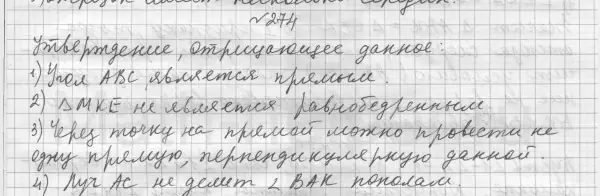 отрезок имеет несколько середин.
№274
Утверждение, отрицающее данное:
1) Угол АВС является прямым.
2) △МКЕ не является равнобедренным
3) Через точку на прямой можно провести не
одну прямую, перпендикулярную данной.
4) Луч АС не делит ∠ ВАК пополам.